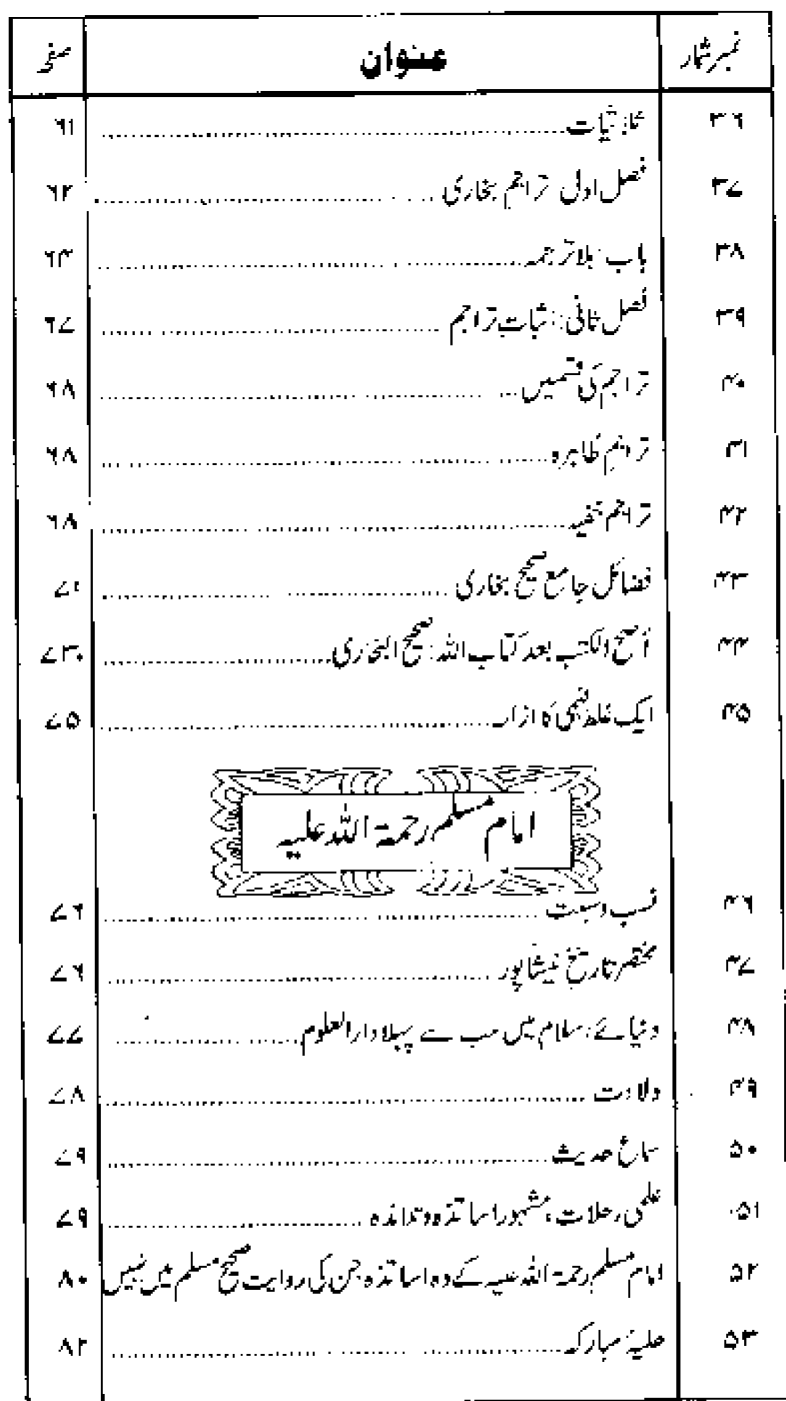 نمبر شمار عنوان صفحہ
۳۶ ثلاثیات ۶۱
۳۷ فصل اول تراجم بخاری ۶۲
۳۸ باب بلا ترجمہ ۶۴
۳۹ فصل ثانی: اثبات تراجم ۶۷
۴۰ تراجم کی قسمیں ۶۸
۴۱ تراجم ظاہرہ ۶۸
۴۲ تراجم خفیہ ۶۸
۴۳ فضائل جامع صحیح بخاری ۷۱
۴۴ أصح الکتب بعد کتاب اللہ: صحیح البخاری ۷۳
۴۵ ایک غلط فہمی کا ازالہ ۷۵
امام مسلم رحمۃ اللہ علیہ
۴۶ نسب ونسبت ۷۶
۴۷ مختصر تاریخ نیشاپور ۷۶
۴۸ دنیائے اسلام میں سب سے پہلا دار العلوم ۷۷
۴۹ ولادت ۷۸
۵۰ سماع حدیث ۷۹
۵۱ علمی رحلات، مشہور اساتذہ وتلامذہ ۷۹
۵۲ امام مسلم رحمۃ اللہ علیہ کے وہ اساتذہ جن کی روایت صحیح مسلم میں نہیں ۸۰
۵۳ حلیۂ مبارکہ ۸۲